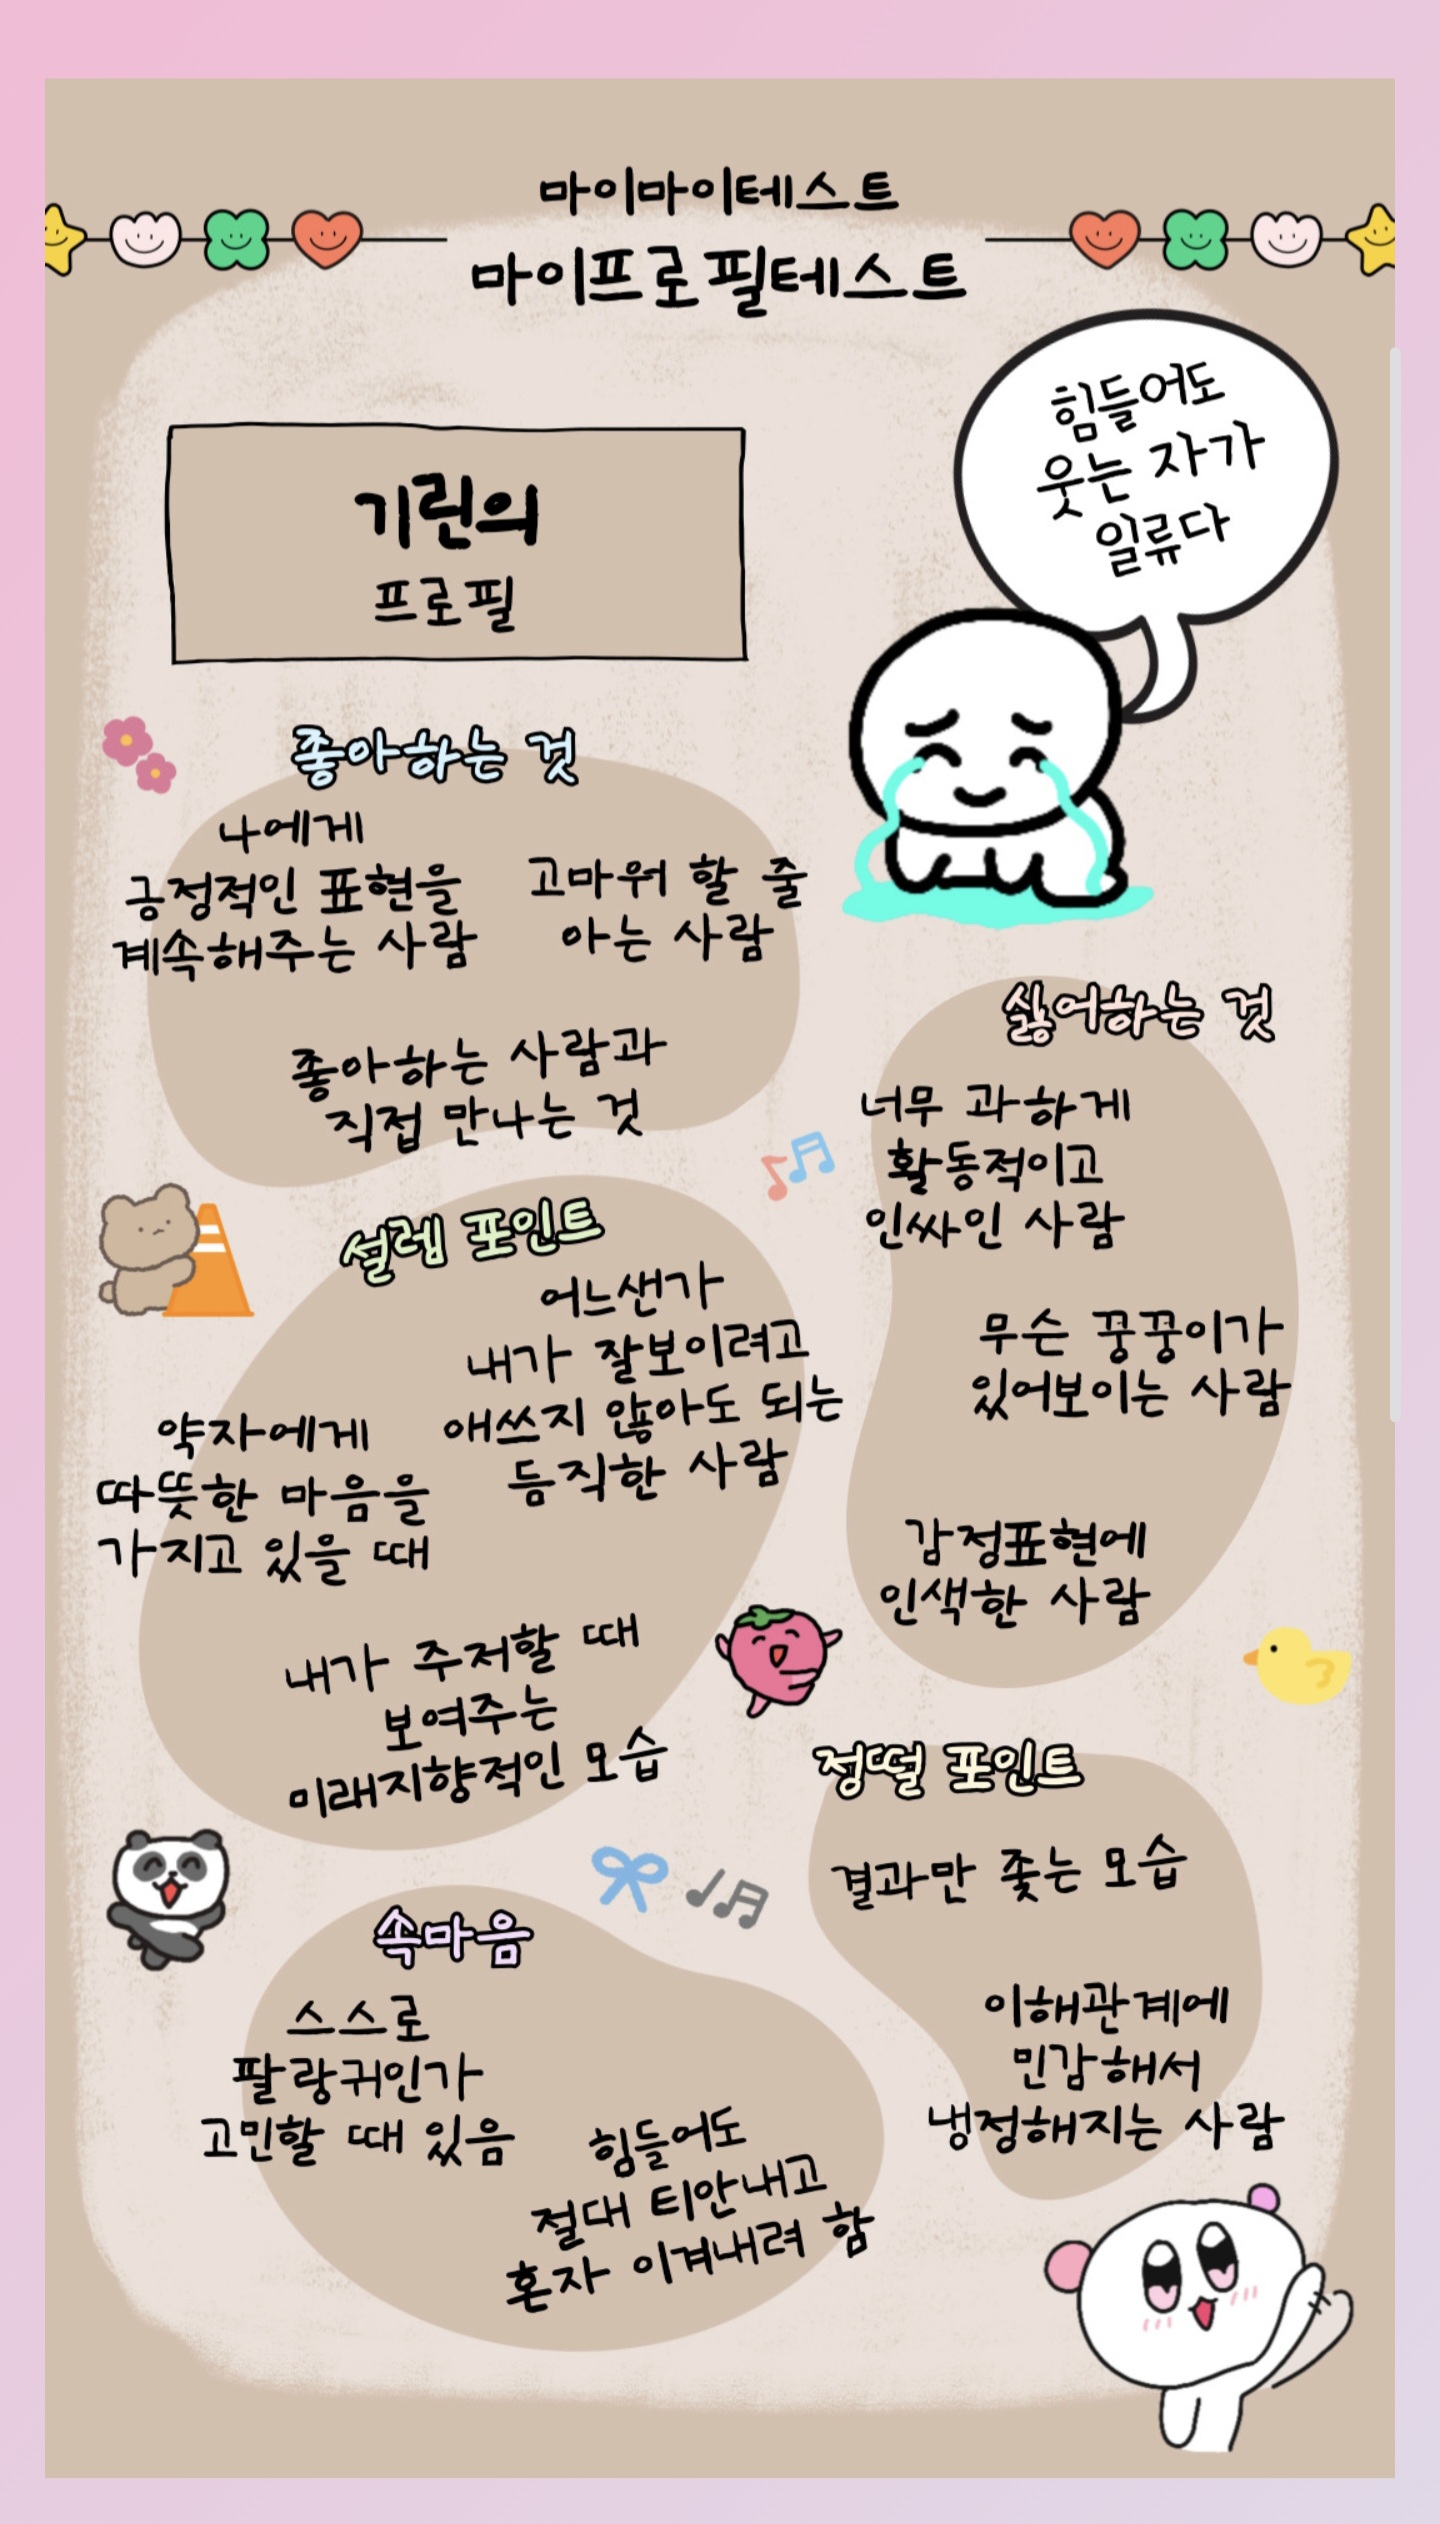 마이마이테스트
마이프로필테스트
힘들어도
웃는 자가
일류다
기린의
프로필
좋아하는 것
나에게
긍정적인 표현을
계속해주는 사람
고마워 할 줄
아는 사람
좋아하는 사람과
직접 만나는 것
싫어하는 것
너무 과하게
활동적이고
인싸인 사람
무슨 꿍꿍이가
있어보이는 사람
감정표현에
인색한 사람
설렘 포인트
어느샌가
내가 잘보이려고
애쓰지 않아도 되는
듬직한 사람
약자에게
따뜻한 마음을
가지고 있을 때
내가 주저할 때
보여주는
미래지향적인 모습
정떨 포인트
결과만 좇는 모습
이해관계에
민감해서
냉정해지는 사람
속마음
스스로
팔랑귀인가
고민할 때 있음
힘들어도
절대 티안내고
혼자 이겨내려 함